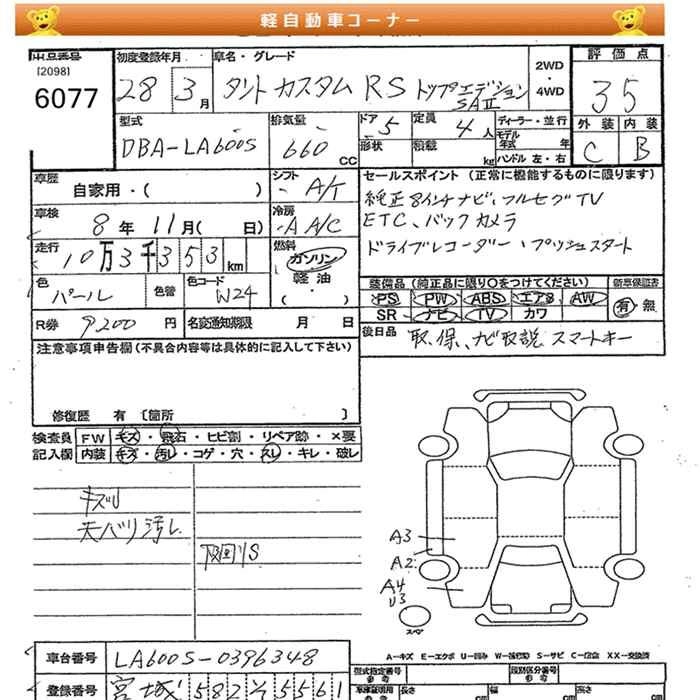 軽自動車コーナー
出品番号
[2098]
6077
初度登録年月
28 3月
車名・グレード
タントカスタム RS トップエディション SAⅡ
2WD
・
4WD
評価点
35
外装 内装
C B
型式
DBA-LA600S
排気量
660 CC
ドア 5
定員 4人
形状
積載 kg
ディーラー・並行
モデル年式 年
ハンドル 左・右
車歴
自家用・( )
シフト
A/T
セールスポイント (正常に機能するものに限ります)
純正8インチナビ、フルセグTV
ETC、バックカメラ
ドライブレコーダー、プッシュスタート
車検
8年 11月( 日)
冷房
A A/C
走行
10万3千353km
燃料
ガソリン
軽油
・( )
色
パール
色替
色コード
W24
装備品 (純正品に限り○をつけてください)
PS PW ABS エアB AW
SR ナビ TV カワ
新車保証書
有・無
R券 9200円
名変通知期限 月 日
後日品 取、保、ナビ取説 スマートキー
注意事項申告欄(不具合内容等は具体的に記入して下さい)
修復歴 有 [箇所 ]
検査員記入欄
FW キズ・飛石・ヒビ割・リペア跡・×要
内装 キズ・汚レ・コゲ・穴・スレ・キレ・破レ
キズU
天バリ汚レ
下回りS
A3
A2
A4
U3
スペア
A-キズ E-エクボ U-凹み W-波 S-サビ C-腐食 XX-交換済
車台番号 LA600S-0396348
型式指定番号
参考
類別区分番号
参考
登録番号 宮城 582 そ 5561
長さ cm
幅 cm
高さ cm